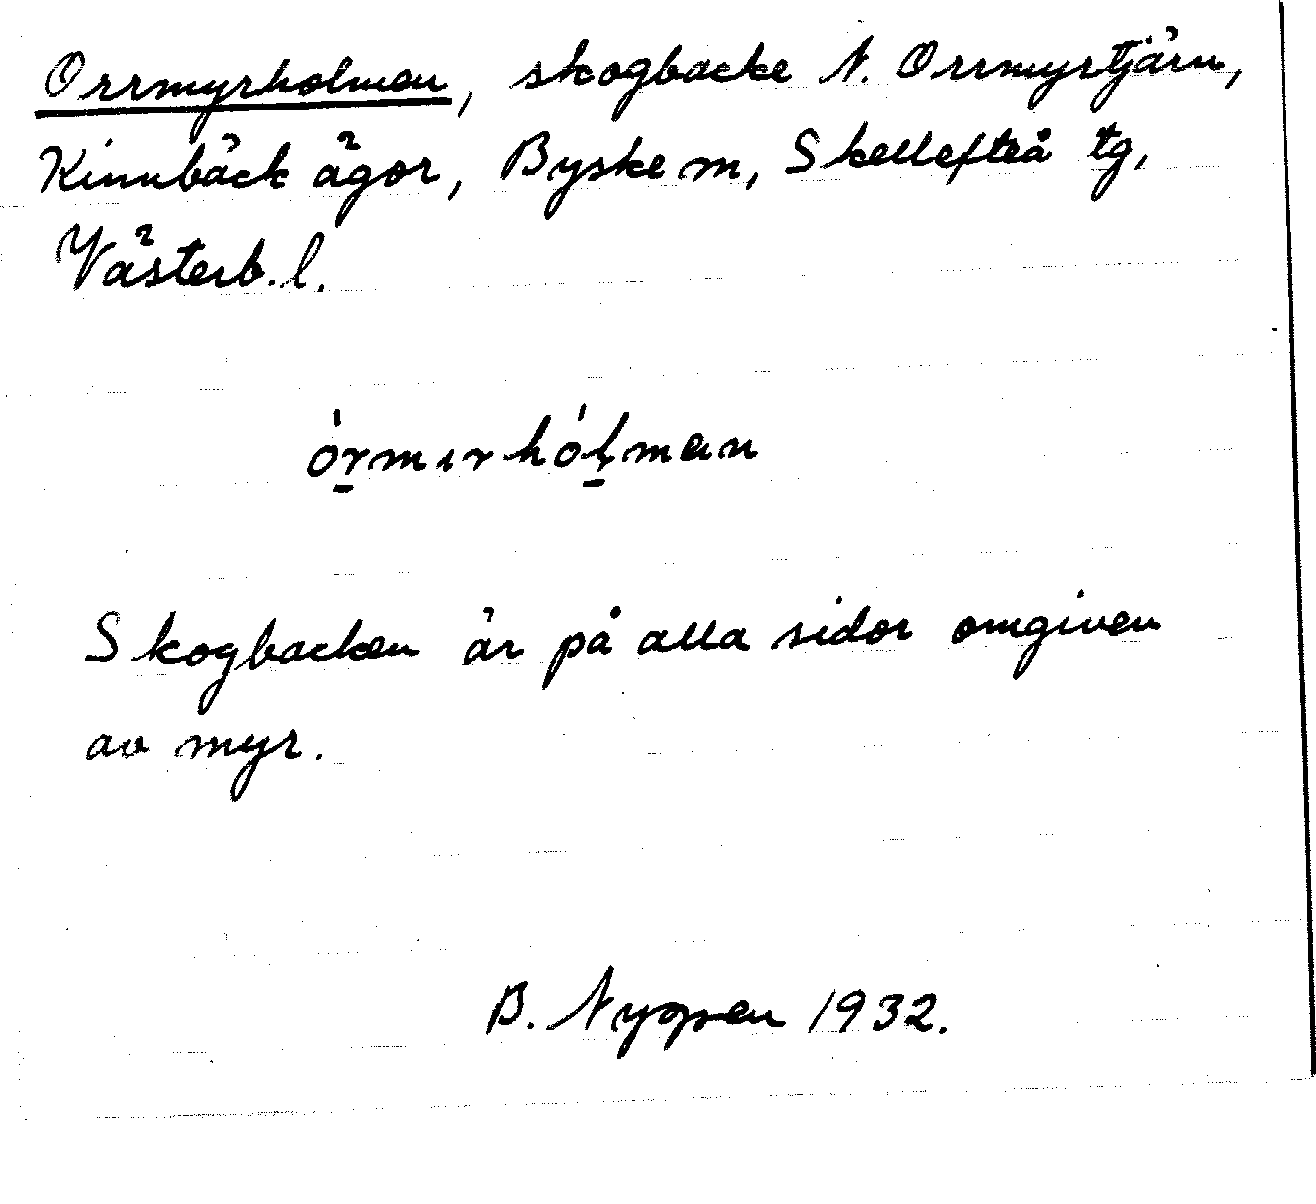 Orrmyrholmen, skogbacke N. Orrmyrtjärn,
Kinnbäck ägor, Byske sn, Skellefteå tg,
Västerb. l.
óṟmırhóḻman
Skogbacken är på alla sidor omgiven
av myr.
B. Nygren 1932.